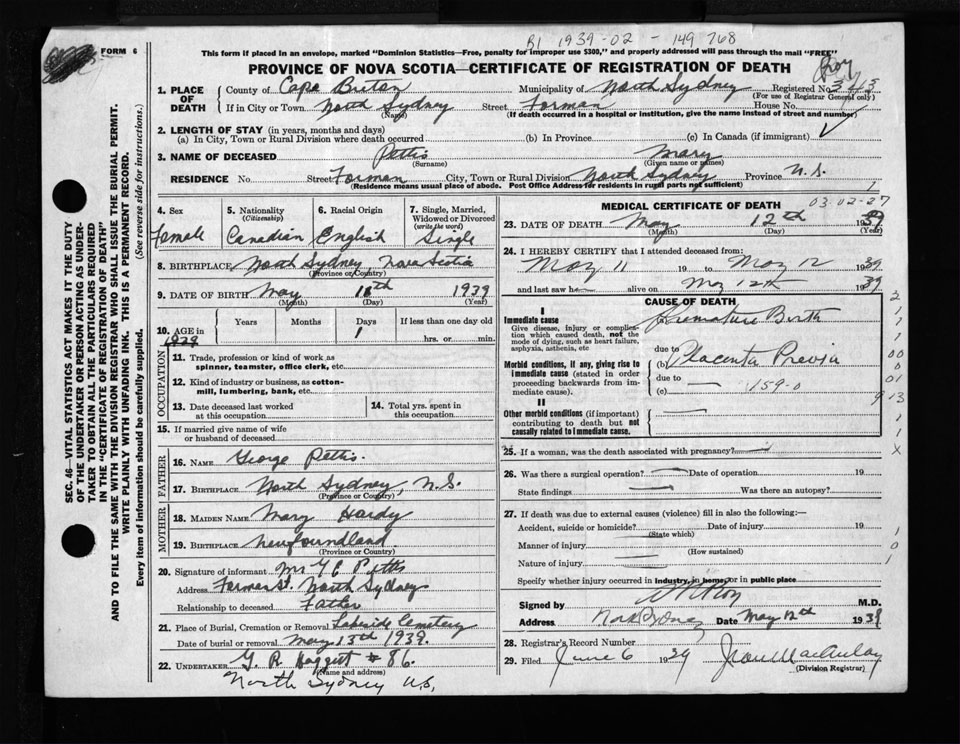 FORM 6
B1 1939-02-149768
This form if placed in an envelope, marked "Dominion Statistics—Free, penalty for improper use $300," and properly addressed will pass through the mail "FREE"
PROVINCE OF NOVA SCOTIA—CERTIFICATE OF REGISTRATION OF DEATH
1. PLACE OF DEATH
County of Cape Breton Municipality of North Sydney Registered No.
(For use of Registrar General only)
If in City or Town North Sydney Street Forman House No.
(Name) (If death occurred in a hospital or institution, give the name instead of street and number)
2. LENGTH OF STAY (in years, months and days)
(a) In City, Town or Rural Division where death occurred (b) In Province (c) In Canada (if immigrant)
3. NAME OF DECEASED Pettis Mary
(Surname) (Given name or names)
RESIDENCE No. Street Forman City, Town or Rural Division North Sydney Province N.S.
(Residence means usual place of abode. Post Office Address for residents in rural parts not sufficient)
SEC. 46—VITAL STATISTICS ACT MAKES IT THE DUTY
OF THE UNDERTAKER OR PERSON ACTING AS UNDERTAKER TO OBTAIN ALL THE PARTICULARS REQUIRED
IN THE "CERTIFICATE OF REGISTRATION OF DEATH"
AND TO FILE THE SAME WITH THE DIVISION REGISTRAR WHO SHALL ISSUE THE BURIAL PERMIT.
WRITE PLAINLY WITH UNFADING INK. THIS IS A PERMANENT RECORD.
Every item of information should be carefully supplied. (See reverse side for instructions.)
4. Sex Female
5. Nationality (Citizenship) Canadian
6. Racial Origin English
7. Single, Married, Widowed or Divorced (write the word) Single
8. BIRTHPLACE North Sydney, Nova Scotia
(Province or Country)
9. DATE OF BIRTH May 1939
(Month) (Day) (Year)
10. AGE in Years Months Days If less than one day old
1939 1 hrs. or min.
OCCUPATION
11. Trade, profession or kind of work as spinner, teamster, office clerk, etc.
12. Kind of industry or business, as cotton-mill, lumbering, bank, etc.
13. Date deceased last worked at this occupation
14. Total yrs. spent in this occupation
15. If married give name of wife or husband of deceased
FATHER
16. NAME George Pettis
17. BIRTHPLACE North Sydney, N.S.
(Province or Country)
MOTHER
18. MAIDEN NAME Mary Hardy
19. BIRTHPLACE Newfoundland
(Province or Country)
20. Signature of informant Pettis
Address Forman St. North Sydney
Relationship to deceased Father
21. Place of Burial, Cremation or Removal Lakeside Cemetery
Date of burial or removal May 13th 1939.
22. UNDERTAKER G. R. Haggett # 86.
(Name and address)
North Sydney N.S.
MEDICAL CERTIFICATE OF DEATH
03-02-27
23. DATE OF DEATH May 12th 1939
(Month) (Day) (Year)
24. I HEREBY CERTIFY that I attended deceased from:
May 11 19 to May 12 1939
and last saw h alive on May 12th 1939
CAUSE OF DEATH
I
Immediate cause
Give disease, injury or complication which caused death, not the mode of dying, such as heart failure, asphyxia, asthenia, etc
(a) Premature Birth
due to
Morbid conditions, if any, giving rise to immediate cause (stated in order proceeding backwards from immediate cause).
(b) Placenta Previa
due to
(c) — 159-0
II
Other morbid conditions (if important) contributing to death but not causally related to immediate cause.
25. If a woman, was the death associated with pregnancy?
26. Was there a surgical operation? Date of operation 19
State findings Was there an autopsy?
27. If death was due to external causes (violence) fill in also the following:—
Accident, suicide or homicide? Date of injury 19
(State which)
Manner of injury
(How sustained)
Nature of injury
Specify whether injury occurred in industry, in home, or in public place
Signed by M.D.
Address North Sydney Date May 12th 1939
28. Registrar's Record Number
29. Filed June 6 1939
(Division Registrar)